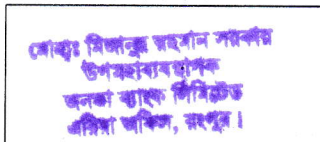 মোহাঃ মিজানুর রহমান সরকার
উপমহাব্যবস্থাপক
জনতা ব্যাংক লিমিটেড
এরিয়া অফিস, রংপুর।